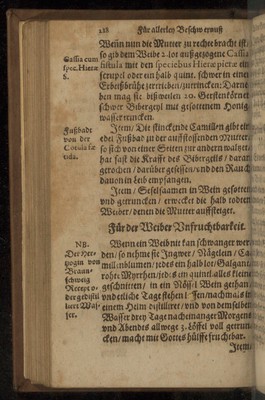 228 Für allerley Beschwernuß
Wenn nun die Mutter zu rechte bracht ist/
so gib dem Weibe 2. lot außgezogene Cassia
fistula mit den speciebus Hieræ picræ ein
scrupel oder ein halb quint. schwer in einer
Erbeißbrühe zerrieben/zutrincken: Darne
ben mag sie bißweilen 20. Gerstenkörner
schwer Bibergeyl mit gesottenem Honig
wasser trincken.
Cassia cum
spec. Hieræ
Item/Die stinckende Camillen gibt ein
edel Fußbad zu der auffstossenden Mutter/
so sich von einer Seiten zur andern waltzet/
hat fast die Krafft des Bibergeils/daran
gerochen/darüber gesessen/und den Rauch
davon in leib empfangen.
Fußbadt
von der
Cotula fæ
tida.
Item/Seselsaamen in Wein gesotten
und getruncken/erwecket die halb todten
Weiber/denen die Mutter auffsteiget.
Für der Weiber Unfruchtbarkeit.
Wenn ein Weib nit kan schwanger wer
den/so nehme sie Ingwer/Nägelein/Ca
millenblumen/jedes ein halb lot/Galgant
rohte Myrrhen/jedes ein quintl alles kleine
geschnitten/in ein Nössel Wein gethan
NB.
Der Her-
tzogin von
Braun-
schweig
Recept o-
der gedistil
liert Was-
ser.
einem Helm distilliret/und von demselben
Wasser drey Tage nach einander Morgens
und Abends allwege 3. Löffel voll getrun
cken/macht mit Gottes hülffe fruchtbar.
Item/